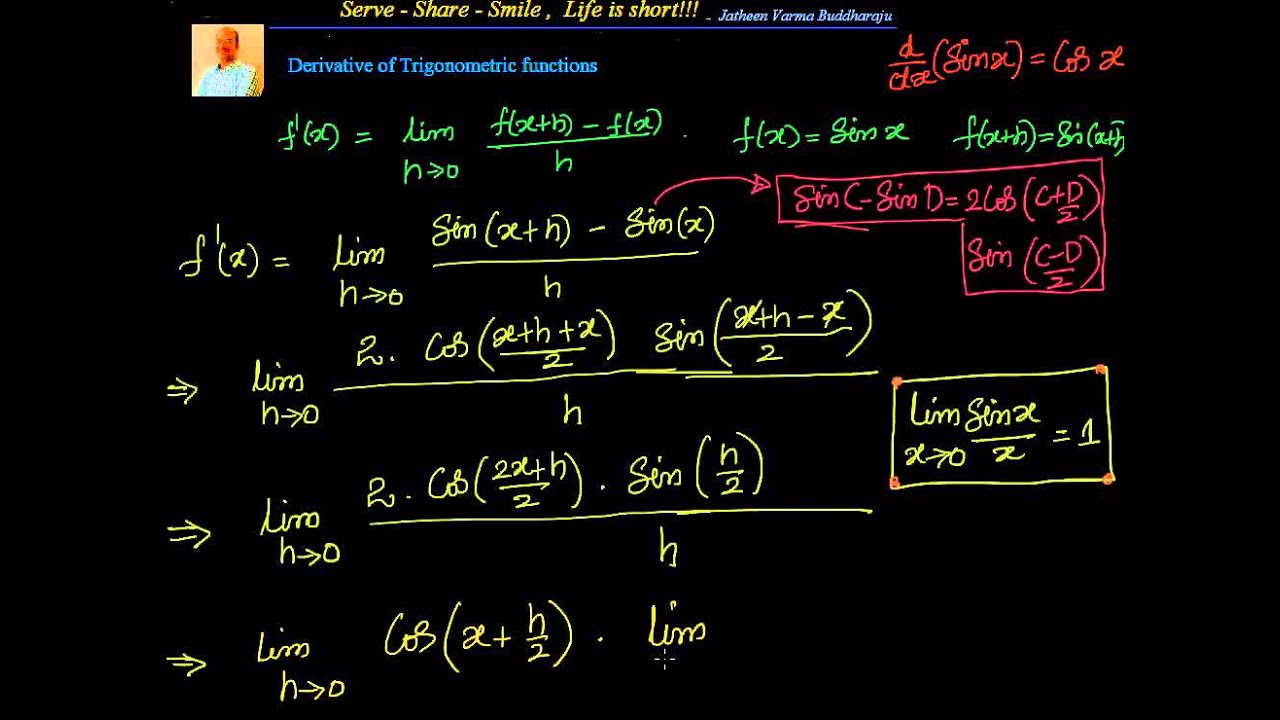 Serve - Share - Smile , Life is short!!! - Jatheen Varma Buddharaju
Derivative of Trigonometric functions
d/dx (Sin x) = Cos x
f'(x) = lim h→0 f(x+h) - f(x) / h . f(x) = Sin x f(x+h) = Sin(x+h)
Sin C - Sin D = 2 Cos (C+D / 2)
Sin (C-D / 2)
f'(x) = lim h→0 Sin (x+h) - Sin(x) / h
⇒ lim h→0 2. Cos (x+h+x / 2) Sin (x+h-x / 2) / h
lim x→0 Sin x / x = 1
⇒ lim h→0 2. Cos (2x+h / 2) . Sin (h / 2) / h
⇒ lim h→0 Cos (x + h/2) . lim